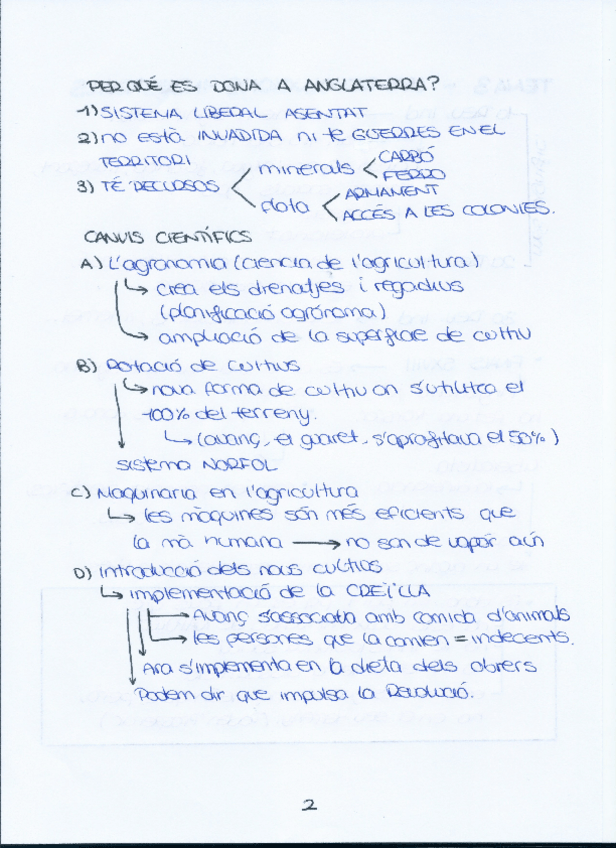 PER QUÈ ES DONA A ANGLATERRA?
1) SISTEMA LIBERAL ASENTAT
2) no està INVADIDA ni té GUERRES EN EL
TERRITORI
3) TÉ RECURSOS
minerals
CARBÓ
FERRO
flota
ARMAMENT
ACCÉS A LES COLONIES.
CANVIS CIENTÍFICS
A) L'agronomia (ciencia de l'agricultura)
crea els drenatjes i regadius
(planificació agrónoma)
ampliació de la superficie de cultiu
B) Rotació de cultius
nova forma de cultiu on s'utilitza el
100% del terreny.
(avanç, el guaret, s'aprofitava el 50%)
sistema NORFOL
C) Maquinaria en l'agricultura
les màquines són més eficients que
la mà humana → no son de vapor aún
D) Introducció dels nous cultius
implementació de la CREÏLLA
Avanç s'associatia amb comida d'animals
les persones que la comien = indecents.
Ara s'implementa en la dieta dels obrers
Podem dir que impulsa la Revolució.
2